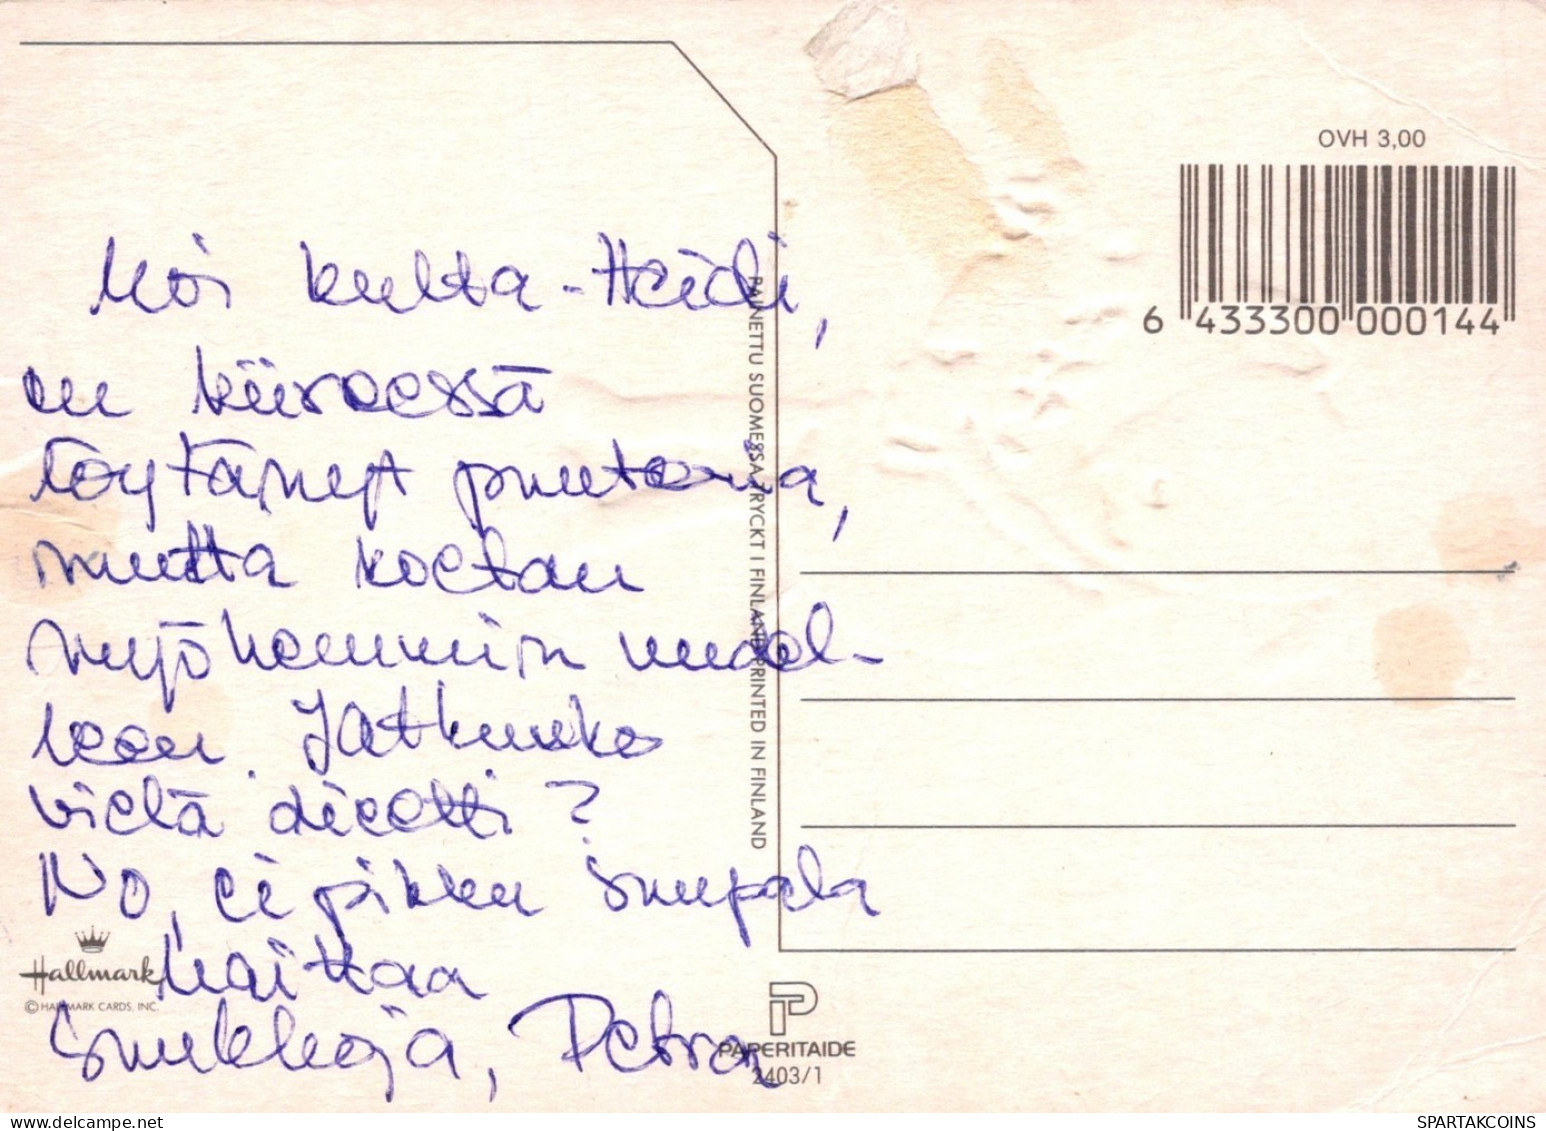 Moi kulta-Heidi,
en kiireessä
löytänyt muutama,
mutta koetan
myöhemmin uudel-
leen. Jatkuuko
vielä dieetti?
No, ei pikku suupala
haittaa
Suukkoja, Petra
OVH 3,00
6 433300 000144
PAINETTU SUOMESSA TRYCKT I FINLAND PRINTED IN FINLAND
Hallmark
© HALLMARK CARDS, INC.
PAPERITAIDE
2403/1
SPARTAKCOINS